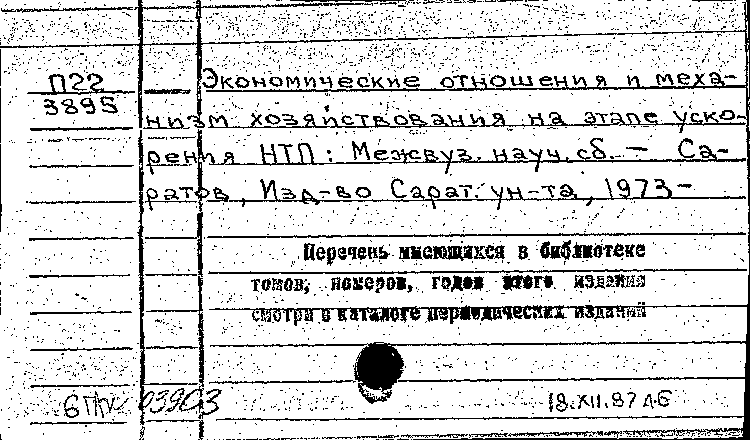 П22
3895
Экономические отношения и меха-
низм хозяйствования на этапе уско-
рения НТП: Межвуз. науч. сб. — Са-
ратов, Изд-во Сарат. ун-та, 1973-
Перечень имеющихся в библиотеке
томов, номеров, годов этого издания
смотри в каталоге периодических изданий
03903
18.XII.87